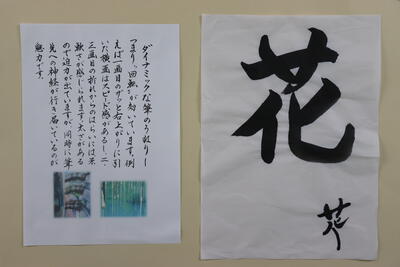 ダイナミックな筆のうねり－
つまり、「回無」が効いています。例
えば一画目のグッと右上がりに引
いた横画はスピード感があるし、二、
三画目の折れからのはらいには柔
軟さが感じられます。太さがある
ので迫力が出ていますが、同時に筆
先への神経が行き届いているのが
魅力です。
花
花